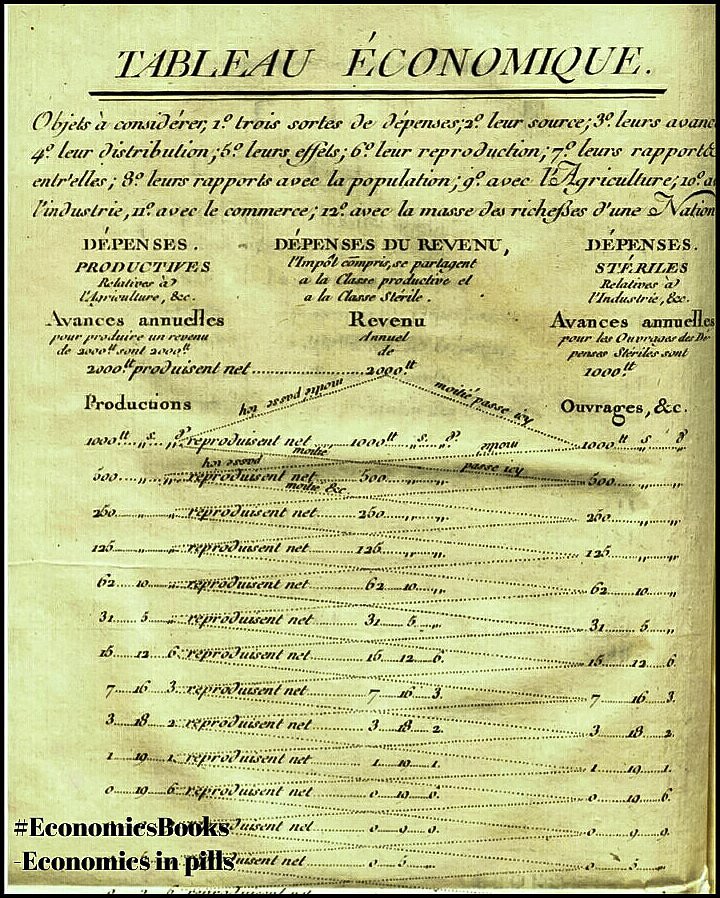 TABLEAU ÉCONOMIQUE.
Objets à considérer, 1.º trois sortes de dépenses; 2.º leur source; 3.º leurs avanc
4.º leur distribution; 5.º leurs effets; 6.º leur reproduction; 7.º leurs rapports
entr'elles; 8.º leurs rapports avec la population; 9.º avec l'Agriculture; 10.º a
l'industrie, 11.º avec le commerce; 12.º avec la masse des richesses d'une Nation
DÉPENSES. DÉPENSES DU REVENU, DÉPENSES.
PRODUCTIVES l'Impôt compris, se partagent STÉRILES
Relatives à a la Classe productive et Relatives à
l'Agriculture, &c. a la Classe Stérile. l'Industrie, &c.
Avances annuelles Revenu Avances annuelles
pour produire un revenu Annuel pour les Ouvrages des Dé
de 2000tt sont 2000tt de penses Stériles sont
2000tt produisent net 2000tt 1000tt
moitié passe icy moitié passe icy
Productions Ouvrages, &c.
1000tt s. d. reproduisent net 1000tt s. d. 1000tt s d
moitié passe icy passe icy
500 reproduisent net 500 500
moitié &c
250 reproduisent net 250 250
125 reproduisent net 125 125
62 10 reproduisent net 62 10 62 10
31 5 reproduisent net 31 5 31 5
15 12 6 reproduisent net 15 12 6. 15 12 6.
7 16 3 reproduisent net 7 16 3. 7 16 3.
3 18 2 reproduisent net 3 18 2. 3 18 2.
1 19 1 reproduisent net 1 19 1. 1 19 1.
0 19 6 reproduisent net 0 19 6. 0 19 6.
reproduisent net 0 9 9. 0 9 9.
reproduisent net 0 5 0 5
#EconomicsBooks
-Economics in pills